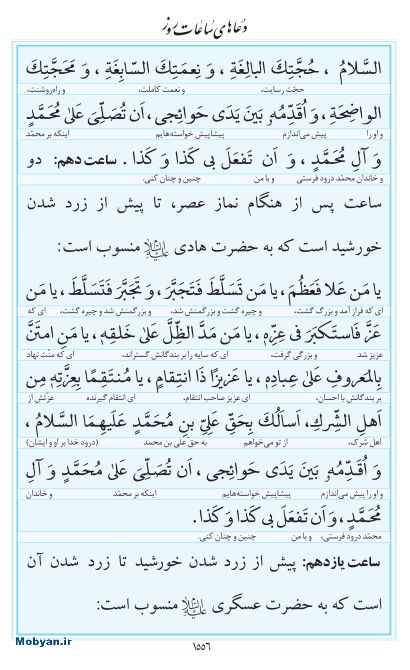 دعاهای ساعات روز
السَّلامُ ، حُجَّتِكَ البالِغَةِ ، وَ نِعمَتِكَ السّابِغَةِ ، وَ مَحَجَّتِكَ
حجّت رسایت، و نعمت کاملت، و راه روشنت،
الواضِحَةِ ، وَ اُقَدِّمُهُ بَینَ یَدَی حَوائِجی، اَن تُصَلِّیَ عَلیٰ مُحَمَّدٍ
و او را پیش می‌اندازم پیشاپیش خواسته‌هایم اینکه بر محمّد
وَ آلِ مُحَمَّدٍ ، وَ اَن تَفعَلَ بی کَذا وَ کَذا . ساعت دهم: دو
و خاندان محمّد درود فرستی و با من چنین و چنان کنی.
ساعت پس از هنگام نماز عصر، تا پیش از زرد شدن
خورشید است که به حضرت هادی علیه‌السلام منسوب است:
یا مَن عَلا فَعَظُمَ ، یا مَن تَسَلَّطَ فَتَجَبَّرَ ، وَ تَجَبَّرَ فَتَسَلَّطَ ، یا مَن
ای که فراز آمد و بزرگ گشت، و چیره گشت و بزرگمنش شد، و بزرگمنش شد و چیره گشت، ای که
عَزَّ فَاستَکبَرَ فی عِزِّهِ ، یا مَن مَدَّ الظِّلَّ عَلیٰ خَلقِهِ ، یا مَنِ امتَنَّ
عزیز شد و بزرگی گرفت، ای که سایه را بر بندگانش گستراند، ای که منّت نهاد
بِالمَعروفِ عَلیٰ عِبادِهِ ، یا عَزیزًا ذَا انتِقامٍ ، یا مُنتَقِمًا بِعِزَّتِهِ مِن
بر بندگانش با احسان، ای عزیز صاحب انتقام، ای انتقام گیرنده عزّتش از
اَهلِ الشِّركِ، اَسأَلُكَ بِحَقِّ عَلِیِّ بنِ مُحَمَّدٍ عَلَیهِمَا السَّلامُ ،
اهل شرک، از تو می‌خواهم به حق علی بن محمد (درود خدا بر او و ایشان)
وَ اُقَدِّمُهُ بَینَ یَدَی حَوائِجی ، اَن تُصَلِّیَ عَلیٰ مُحَمَّدٍ وَ آلِ
و او را پیش می‌اندازم پیشاپیش خواسته‌هایم اینکه بر محمّد و خاندان
مُحَمَّدٍ ، وَ اَن تَفعَلَ بی کَذا وَ کَذا .
محمّد درود فرستی، و با من چنین و چنان کنی.
ساعت یازدهم: پیش از زرد شدن خورشید تا زرد شدن آن
است که به حضرت عسکری علیه‌السلام منسوب است:
۱۵۵٦
Mobyan.ir